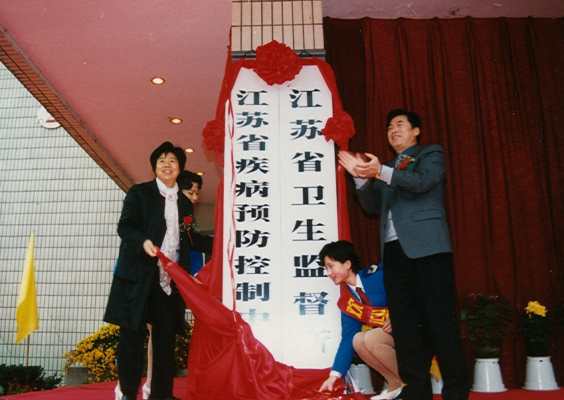 江苏省卫生监督所
江苏省疾病预防控制中